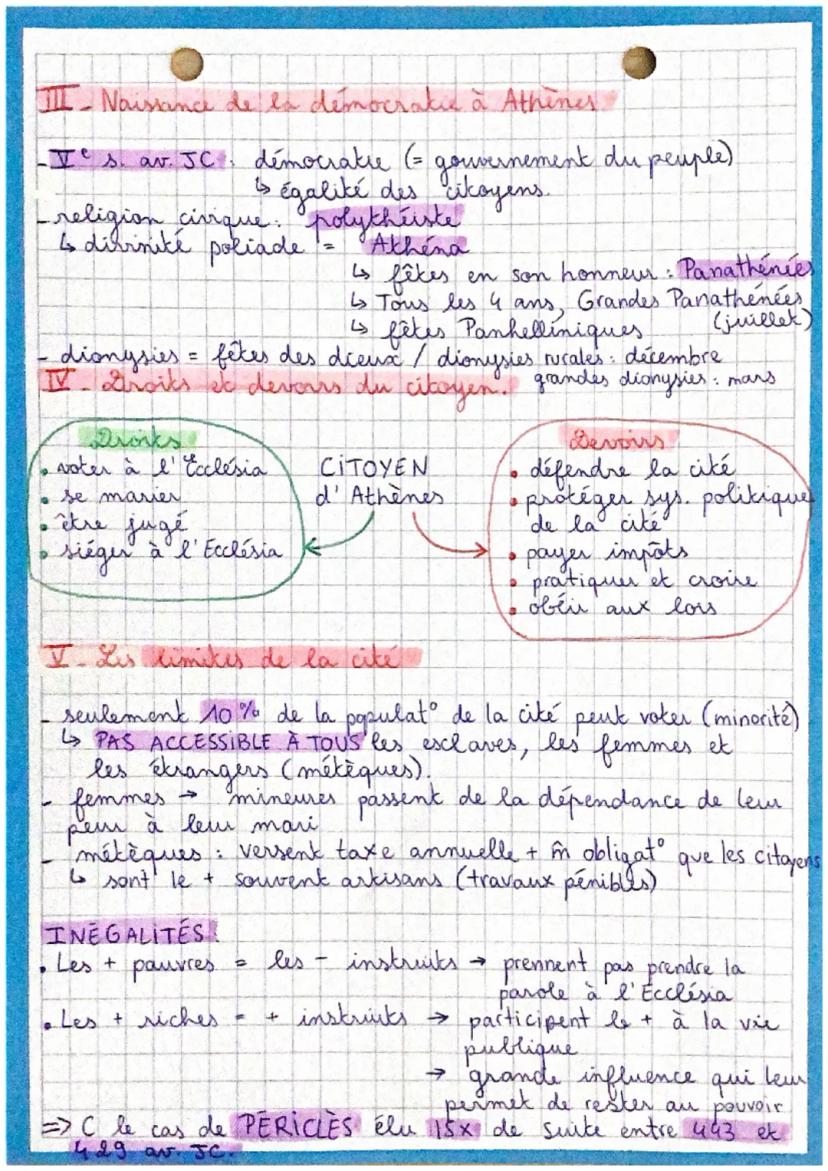 III - Naissance de la démocratie à Athènes
- Ve s. av. JC : démocratie (= gouvernement du peuple)
↳ égalité des citoyens.
- religion civique : polythéiste
↳ divinité poliade = Athéna
↳ fêtes en son honneur : Panathénées
↳ Tous les 4 ans, Grandes Panathénées
(juillet)
↳ fêtes Panhelliniques
- dionysies = fêtes des dieux / dionysies rurales : décembre
grandes dionysies : mars
IV - Droits et devoirs du citoyen.
Droits
• voter à l'Ecclésia
• se marier
• être jugé
• siéger à l'Ecclésia
CITOYEN
d'Athènes
Devoirs
• défendre la cité
• protéger sys. politique
de la cité
• payer impôts
• pratiquer et croire
• obéir aux lois
V - Les limites de la cité
- seulement 10% de la populat° de la cité peut voter (minorité)
↳ PAS ACCESSIBLE À TOUS les esclaves, les femmes et
les étrangers (métèques).
- femmes → mineures passent de la dépendance de leur
peur à leur mari
- métèques : versent taxe annuelle + m̂ obligat° que les citoyens
↳ sont le + souvent artisans (travaux pénibles)
INÉGALITÉS :
• Les + pauvres = les - instruits → prennent pas prendre la
parole à l'Ecclésia
• Les + riches = + instruits → participent le + à la vie
publique
→ grande influence qui leur
permet de rester au pouvoir
=> C le cas de PÉRICLÈS élu 15x de suite entre 443 et
429 av. JC.